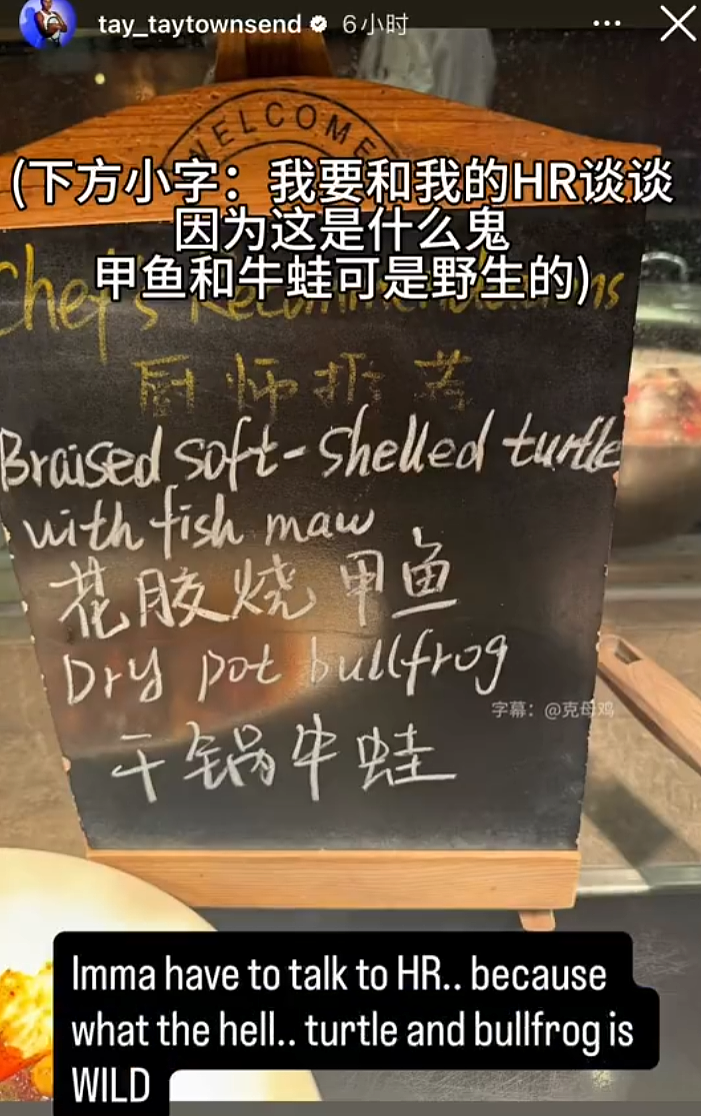 tay_taytownsend 6小时
WELCOME
(下方小字：我要和我的HR谈谈
因为这是什么鬼
甲鱼和牛蛙可是野生的)
Chef's Recommendations
厨师推荐
Braised soft-shelled turtle
with fish maw
花胶烧甲鱼
Dry pot bullfrog
字幕：@克母鸡
干锅牛蛙
Imma have to talk to HR.. because
what the hell.. turtle and bullfrog is
WILD